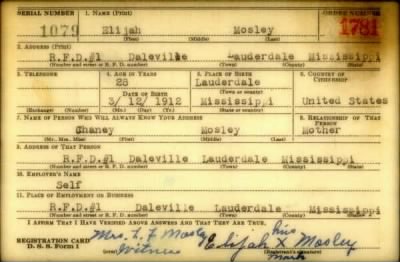 SERIAL NUMBER 1. NAME (Print) ORDER NUMBER
1079 Elijah Mosley 1781
(First) (Middle) (Last)
2. ADDRESS (Print)
R.F.D.#1 Daleville Lauderdale Mississippi
(Number and street or R. F. D. number) (Town) (County) (State)
3. TELEPHONE 4. AGE IN YEARS 5. PLACE OF BIRTH 6. COUNTRY OF
28 Lauderdale CITIZENSHIP
DATE OF BIRTH (Town or county)
3/ 12/ 1912 Mississippi United States
(Exchange) (Number) (Mo.) (Day) (Yr.) (State or country)
7. NAME OF PERSON WHO WILL ALWAYS KNOW YOUR ADDRESS 8. RELATIONSHIP OF THAT
PERSON
Chaney Mosley Mother
(Mr., Mrs., Miss) (First) (Middle) (Last)
9. ADDRESS OF THAT PERSON
R.F.D.#1 Daleville Lauderdale Mississippi
(Number and street or R. F. D. number) (Town) (County) (State)
10. EMPLOYER'S NAME
Self
11. PLACE OF EMPLOYMENT OR BUSINESS
Daleville Lauderdale Mississippi
(Number and street or R. F. D. number) (Town) (County) (State)
I AFFIRM THAT I HAVE VERIFIED ABOVE ANSWERS AND THAT THEY ARE TRUE.
REGISTRATION CARD Mrs. Mosley his
D. S. S. Form 1 Witness Elijah X Mosley
(over) (Registrant's signature)
mark